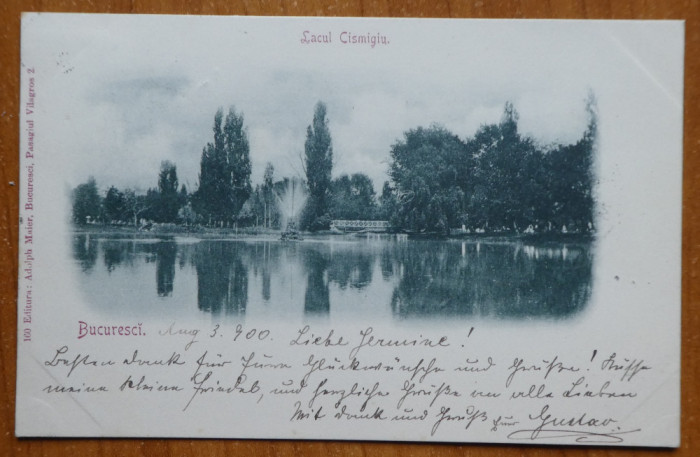 Lacul Cismigiu.
160 Editura: Adolph Maier, Bucuresci, Pasagiul Vilagros 2
Bucurescĭ. Aug 3. 900. Liebe Hermine!
Besten Dank für Eure Glückwünsche und Grüße! Küsse
meine kleine Friedel, und herzliche Grüße an alle Lieben
Mit Dank und Gruß Gustav.